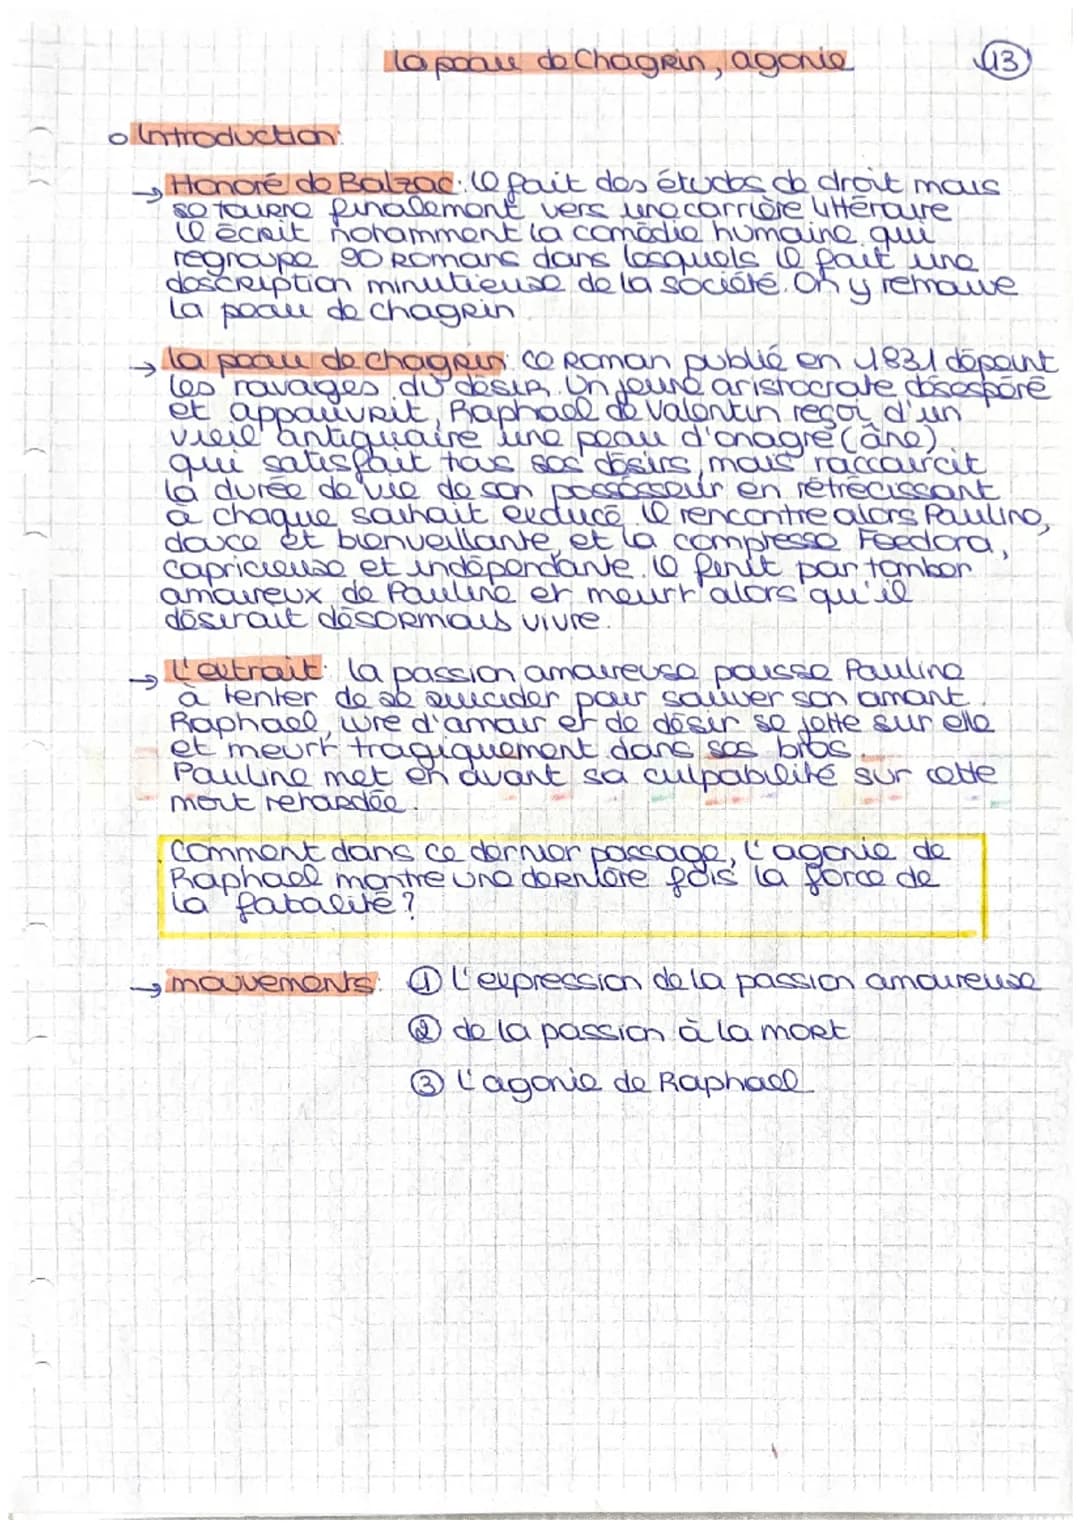 La peau de Chagrin, agonie
13
Introduction:
→ Honoré de Balzac: il fait des études de droit mais
se tourne finalement vers une carrière littéraire
il écrit notamment la comédie humaine qui
regroupe 90 romans dans lesquels il fait une
description minutieuse de la société. On y remarque
la peau de chagrin
→ la peau de chagrin: ce roman publié en 1831 dépeint
les ravages du désir. Un jeune aristocrate désespéré
et appauvrit, Raphael de Valentin reçoi d'un
vieil antiquaire une peau d'onagre (âne)
qui satisfait tous ses désirs, mais raccourcit
la durée de vie de son possésseur en rétrécissant
à chaque souhait exducé. Il rencontre alors Pauline,
douce et bienveillante et la comptesse Foedora,
capricieuse et indépendante. Il finit par tomber
amoureux de Pauline et meurt alors qu'il
désirait désormais vivre.
→ L'extrait: la passion amoureuse pousse Pauline
à tenter de se suicider pour sauver son amant.
Raphael, ivre d'amour et de désir se jette sur elle
et meurt tragiquement dans ses bras.
Pauline met en avant sa culpabilité sur cette
mort retardée.
Comment dans ce dernier passage, l'agonie de
Raphael montre une dernière fois la force de
la fatalité?
→ mouvements: ① L'expression de la passion amoureuse
② de la passion à la mort
③ L'agonie de Raphael